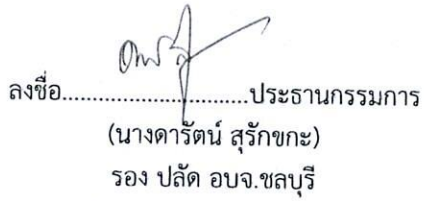 ลงชื่อ..............................ประธานกรรมการ
(นางดารัตน์ สุรักขกะ)
รอง ปลัด อบจ.ชลบุรี